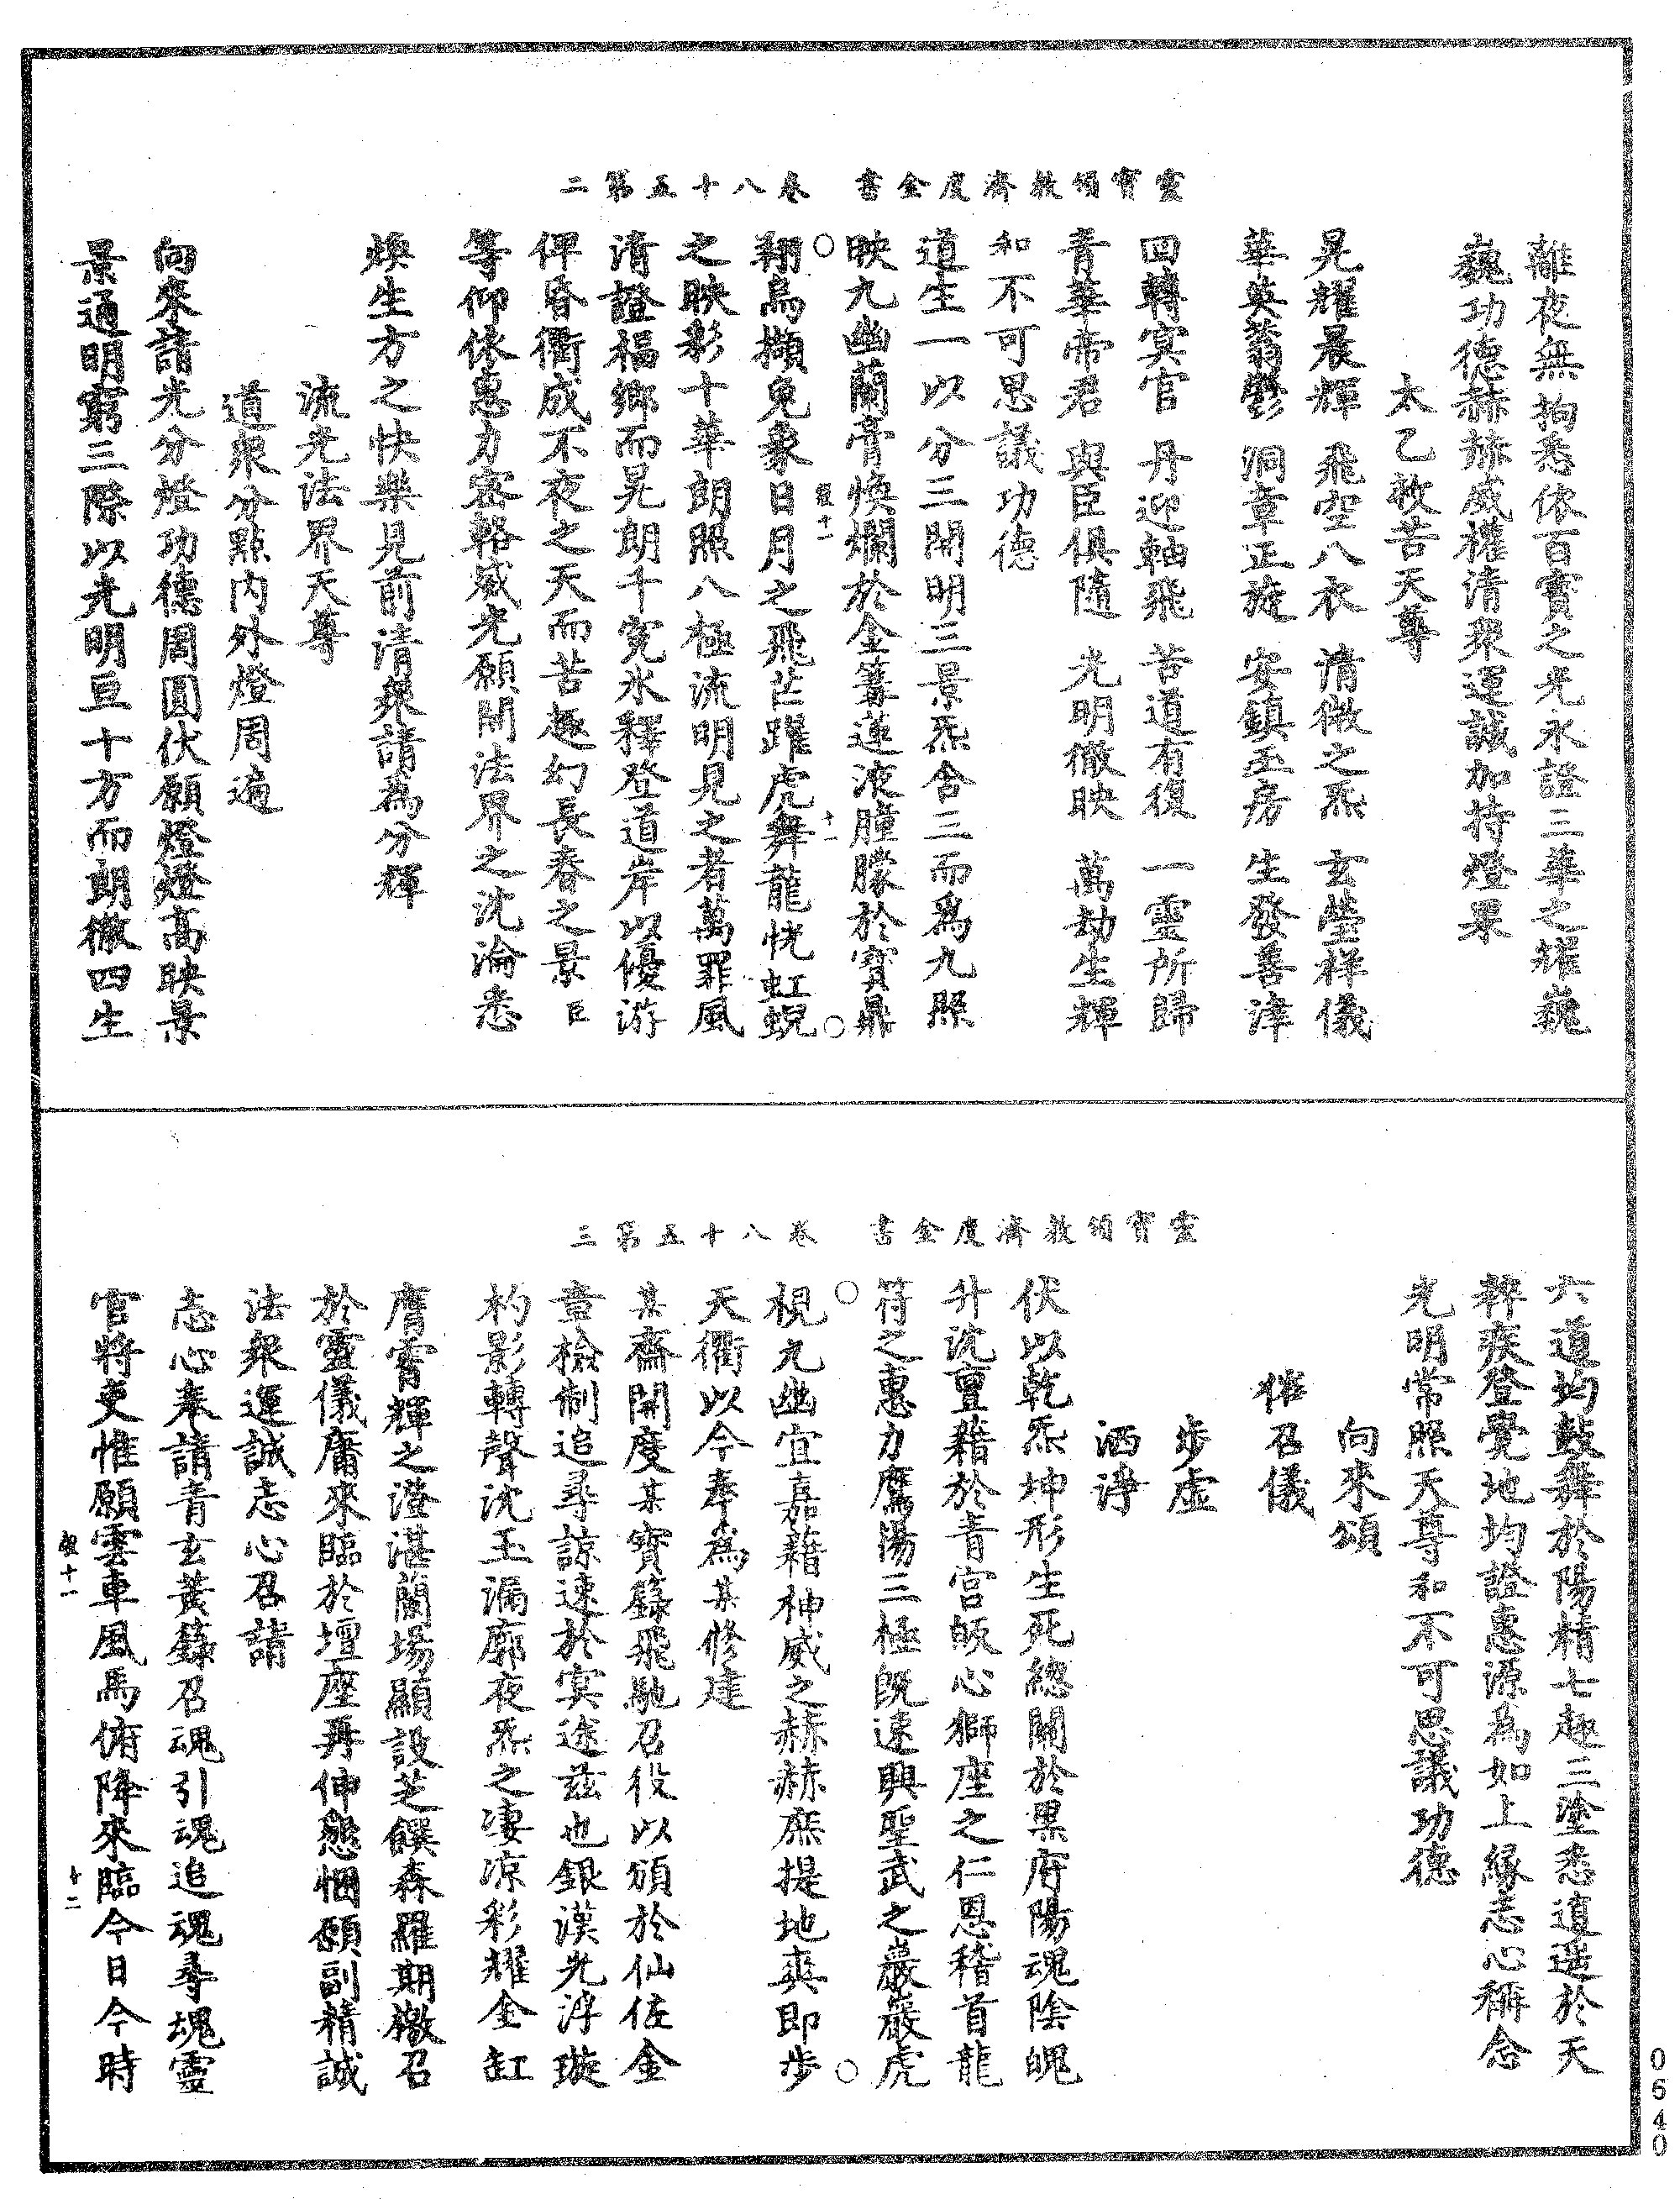 靈寶領教濟度金書　卷八十五第二
離夜無拘悉依百寶之光永證三華之耀巍
巍功德赫赫威權清眾運誠加持燈果
太乙救苦天尊
晃耀晨輝　飛空八衣　清微之炁　玄瑩祥儀
華英蓊鬱　洞章正旋　安鎮玉房　生發善津
回轉冥官　丹迎軸飛　苦道有復　一靈所歸
青華帝君　與臣俱隨　光明徹映　萬劫生輝
和不可思議功德
道生一以分三開明三景炁含三而爲九照
映九幽蘭膏煥爛於金篝蓮液朣朦於寶鼎
翔烏擷兔象日月之飛芒躍虎舞龍恍虹蜺
之映彩十華朗照八極流明見之者萬罪風
清證福鄉而晃朗千寃氷釋登道岸以優游
俾昏衢成不夜之天而苦趣幻長春之景臣
等仰依惠力密輅威光願開法界之沈淪悉
煥生方之快樂見前清眾請為分輝
流光法界天尊
道眾分點內外燈周遍
向來請光分燈功德周圓伏願燈燈高映景
景通明窮三際以光明亘十方而朗徹四生
靈寶領教濟度金書　卷八十五第三
六道均鼓舞於陽精七趣三塗悉逍遥於天
粹疾登覺地均證惠源為如上緣志心稱念
光明常照天尊和不可思議功德
向來頌
催召儀
步虛
洒淨
伏以乾炁坤形生死總關於黑府陽魂陰魄
升沈亶藉於青宮皈心獅座之仁恩稽首龍
符之惠力鷹陽三極旣速興聖武之嚴嚴虎
梘九幽宜嘉藉神威之赫赫庶提地爽即步
天衢以今奉為某修建
某齋開度某寶籙飛馳召役以頒於仙佐金
章檢制追尋諒速於冥途茲也銀漢光浮璇
杓影轉聲沈玉漏廓夜炁之凄凉彩耀金缸
膺霄輝之澄湛蘭場顯設芝饌森羅期檄召
於靈儀庸來臨於壇座再伸懇悃願副精誠
法眾運誠志心召請
志心奉請青玄黃籙召魂引魂追魂尋魂靈
官將吏惟願雲車風馬俯降來臨今日今時
0640